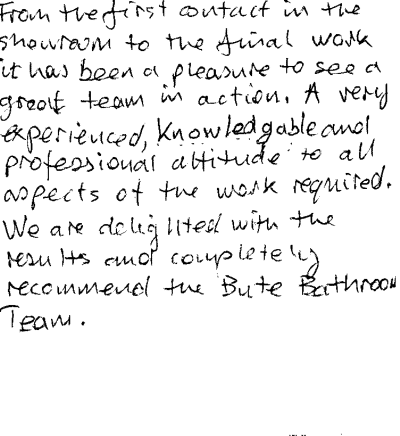 From the first contact in the
showroom to the final work
it has been a pleasure to see a
great team in action. A very
experienced, knowledgable and
professional attitude to all
aspects of the work required.
We are delighted with the
results and completely
recommend the Bute Bathroom
Team.